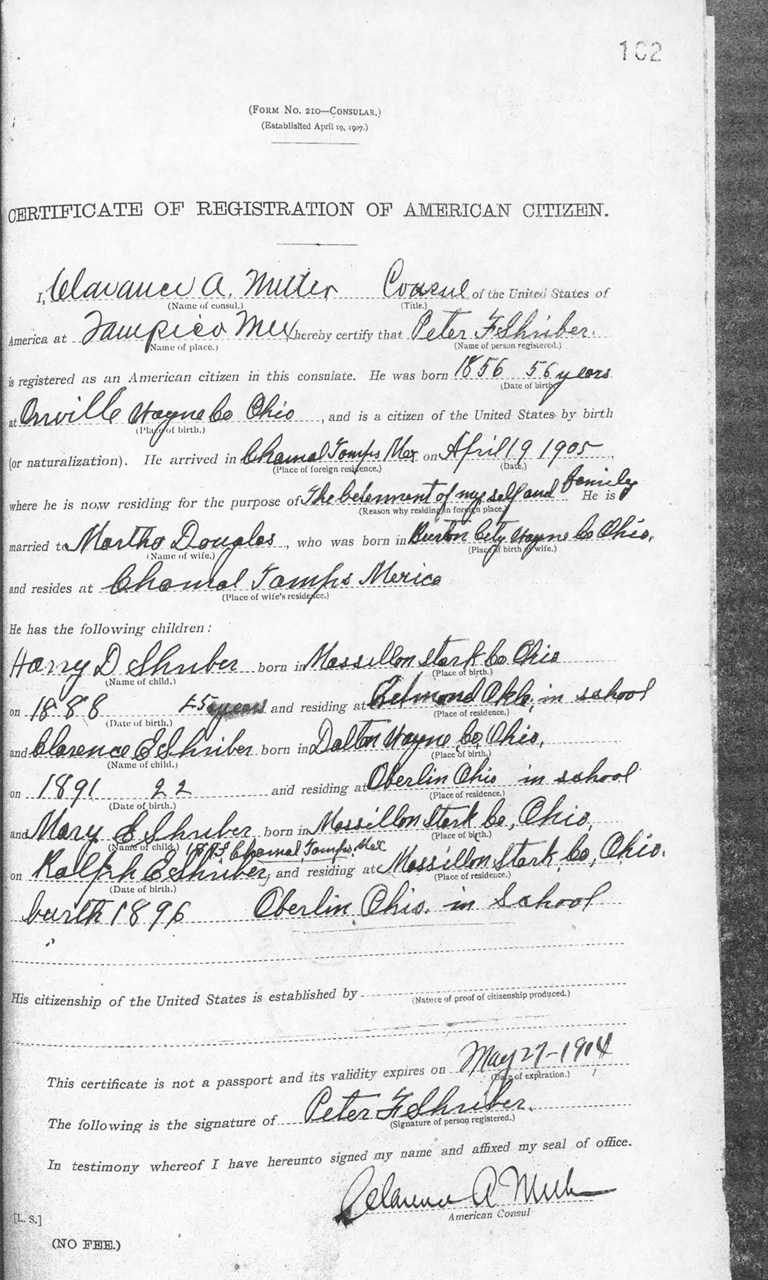 102
(Form No. 210—Consular.)
(Established April 19, 1907.)
CERTIFICATE OF REGISTRATION OF AMERICAN CITIZEN.
I, Clarance A. Miller Consul of the United States of
(Name of consul.) (Title.)
America at Tampico Mex hereby certify that Peter F Shriber.
(Name of place.) (Name of person registered.)
is registered as an American citizen in this consulate. He was born 1856 56 years
(Date of birth.)
at Orrville Wayne Co Ohio, and is a citizen of the United States by birth
(Place of birth.)
(or naturalization). He arrived in Chamal Tamps Mex on April 19 1905,
(Place of foreign residence.) (Date.)
where he is now residing for the purpose of The beterment of my self and family He is
(Reason why residing in foreign place.)
married to Martha Douglas, who was born in Burton City Wayne Co Ohio,
(Name of wife.) (Place of birth of wife.)
and resides at Chamal Tamps Mexico
(Place of wife's residence.)
He has the following children:
Harry D Shriber born in Massillon Stark Co Ohio
(Name of child.) (Place of birth.)
on 1888 25 years and residing at Okla, in school
(Date of birth.) (Place of residence.)
and Clarence E Shriber born in Dalton Wayne Co, Ohio,
(Name of child.) (Place of birth.)
on 1891 22 and residing at Oberlin Ohio in school
(Date of birth.) (Place of residence.)
and Mary E Shriber born in Massillon Stark Co, Ohio,
(Name of child.) (Place of birth.)
Chamal, Tamps, Mex
on Ralph E Shriber, and residing at Massillon Stark Co, Ohio.
(Date of birth.) (Place of residence.)
burth 1896 Oberlin Ohio. in School
His citizenship of the United States is established by
(Nature of proof of citizenship produced.)
This certificate is not a passport and its validity expires on May 27-1914
(Date of expiration.)
The following is the signature of Peter F Shriber.
(Signature of person registered.)
In testimony whereof I have hereunto signed my name and affixed my seal of office.
Clarence A Miller
American Consul
[L. S.]
(NO FEE.)